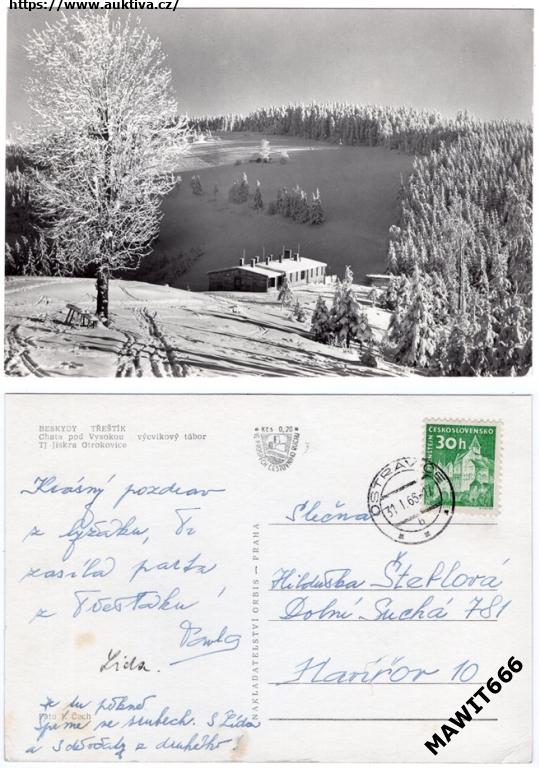 https://www.auktiva.cz/
BESKYDY TŘEŠTÍK
Chata pod Vysokou výcvikový tábor
TJ Jiskra Otrokovice
Kčs 0,20
Krásný pozdrav
z lyžáku, Ti
zasílá parta
z Třešťáku!
Pavla
Lída
Je tu pěkně
Foto V. Čech
Spíme ve srubech. S Lída
a děvčaty z druhého!
NAKLADATELSTVÍ ORBIS — PRAHA
ČESKOSLOVENSKO
30h
OSTRAVA
31.1.66
b
Slečna
Hilduška Šteflová
Dolní Suchá 781
Havířov 10
MAWIT666